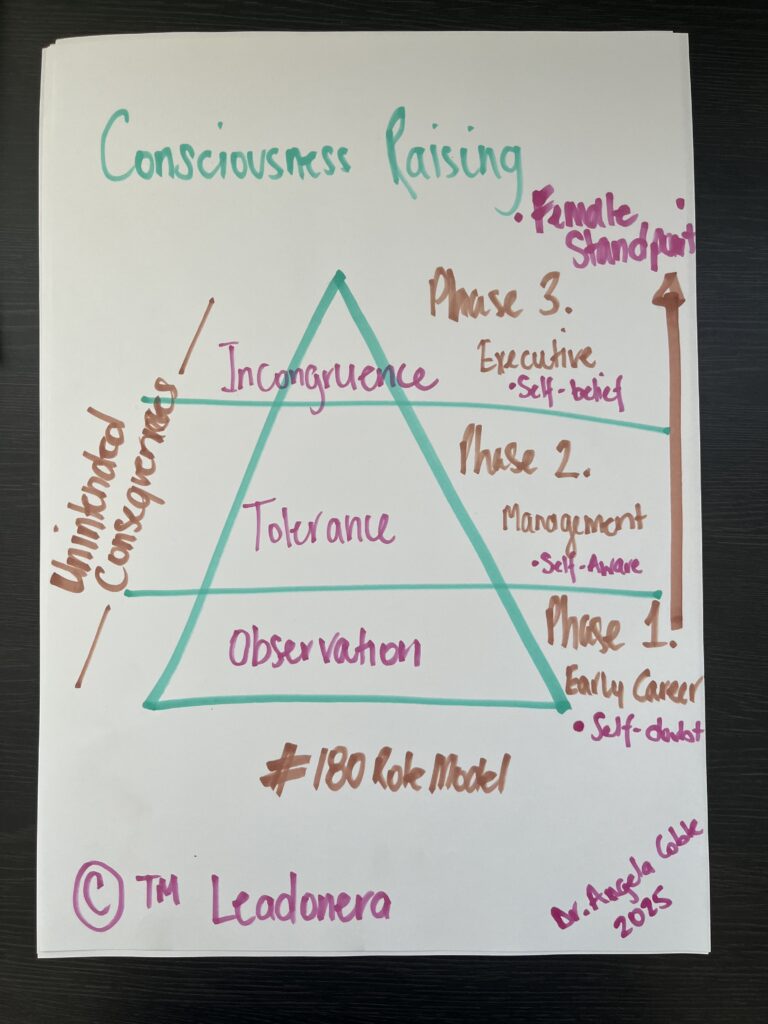 Consciousness Raising
• Female
Standpoint
Phase 3.
Executive
• Self-belief
Incongruence
Unintended
Consequences
Phase 2.
Management
• Self-Aware
Tolerance
Phase 1.
Early Career
• Self-doubt
Observation
#180 Role Model
© TM Leadonera
Dr. Angela Coble
2025